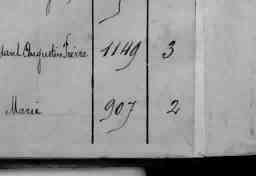 Augustin Pierre 1149 3
Marie 907 2